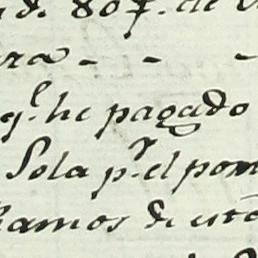 d. 80 f. de
ra - - -
q.e he pagado
Sola p.r el pom
Ramos de esto